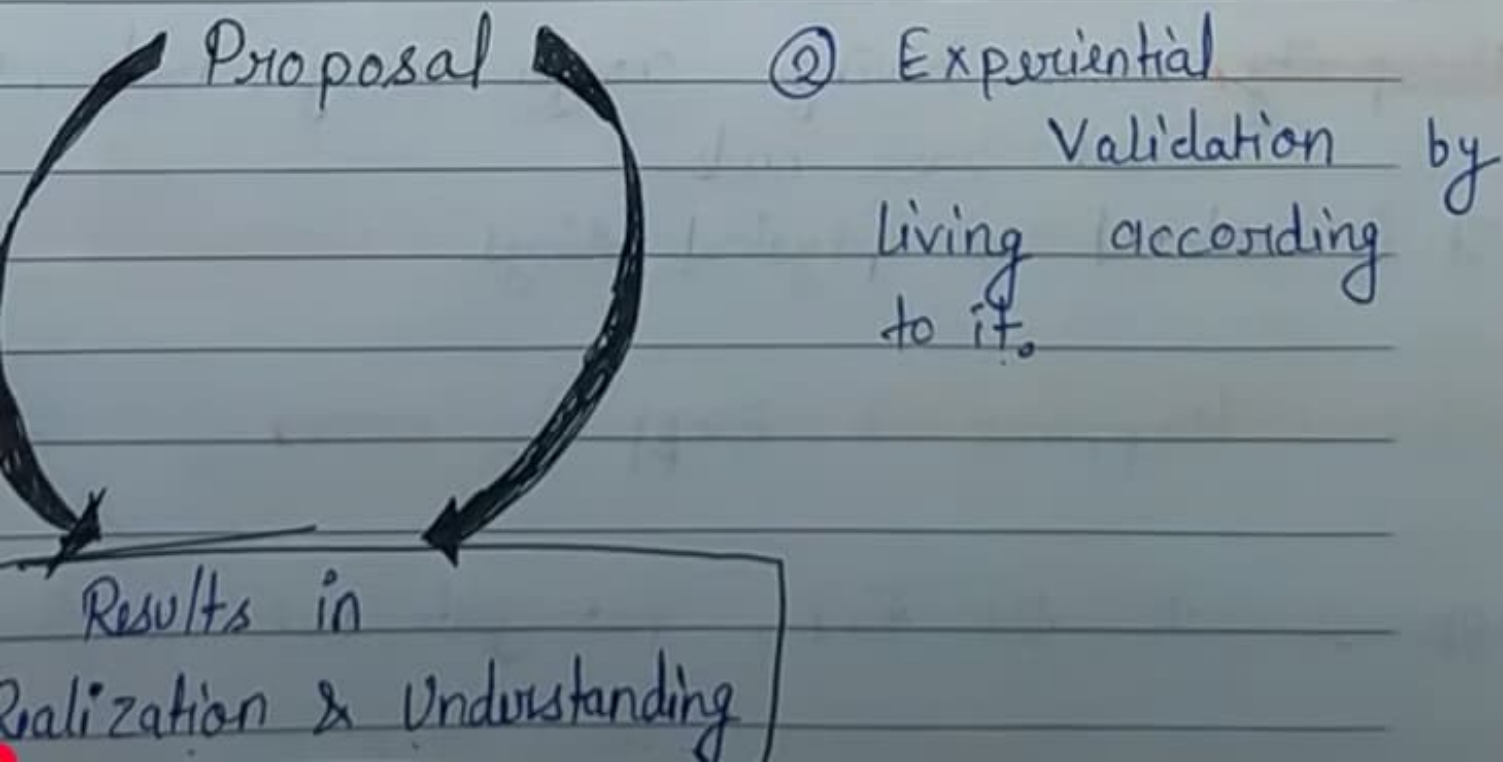 Proposal
② Experiential
Validation by
living according
to it.
Results in
Realization & Understanding